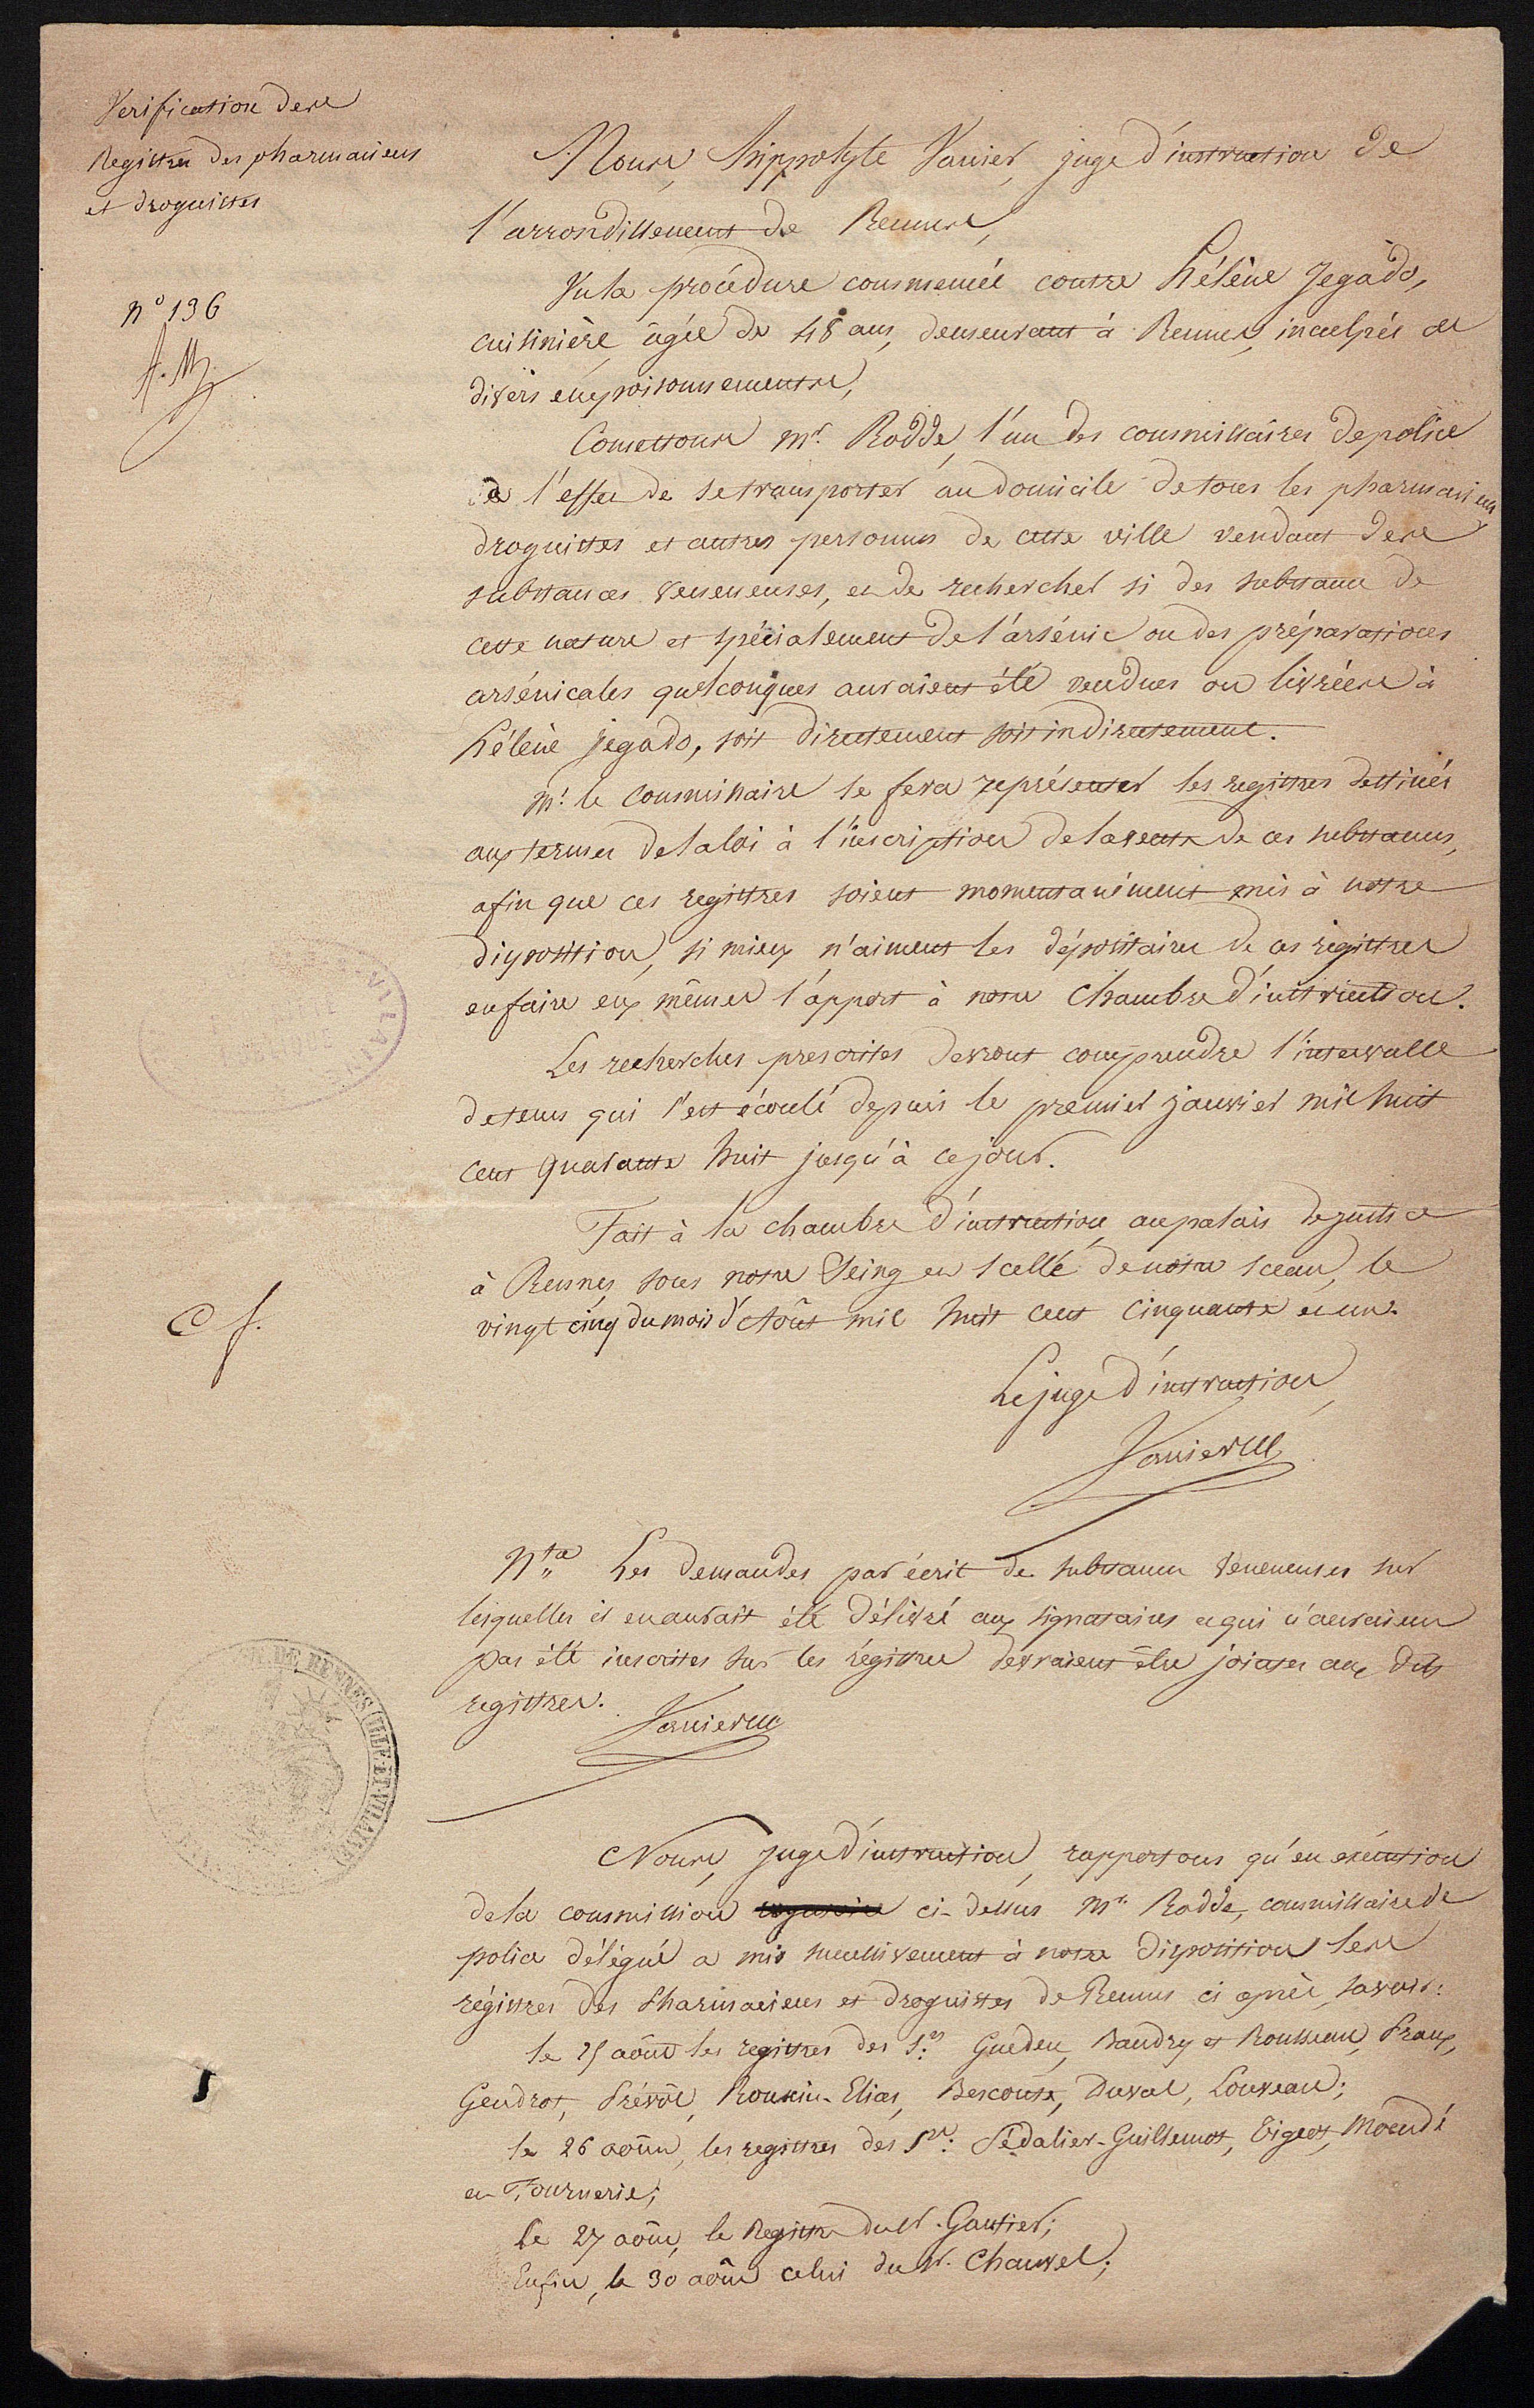 Verification des
Registres des pharmaciens
et droguistes
n° 196
Nous, hippolyte Vanier, juge d'instruction de
l'arrondissement de Rennes,
Vu la procédure commencée contre hélène Jegado,
cuisinière, agée de 48 ans, demeurant à Rennes, inculpée de
divers empoisonnements,
Comettons Mr. Rodde, l'un des commissaires de police
à l'effet de se transporter au domicile de tous les pharmaciens
droguistes et autres personnes de cette ville vendant des
substances veneneuses, et de rechercher si des substances de
cette nature et spécialement de l'arsénic ou des préparations
arsénicales quelconques auraient été vendues ou livrées à
hélène Jegado, soit directement soit indirectement.
Mr. le Commissaire se fera représenter les registres destinés
aux termes de la loi à l'inscription de la vente de ces substances,
afin que ces registres soient momentanément mis à notre
disposition, si mieux n'aiment les dépositaires de ces registres
en faire eux mêmes l'apport à notre Chambre d'instruction.
Les recherches prescrites devront comprendre l'intervalle
de tems qui s'est écoulé depuis le premier janvier mil huit
cent quarante huit jusqu'à ce jour.
Fait à la chambre d'instruction, au palais de justice
à Rennes, sous notre Seing et scellé de notre sceau, le
vingt cinq du mois d'Août mil huit cent cinquante et un.
Le juge d'instruction,
Vanier
Nta Les demandes par écrit de substances veneneuses sur
lesquelles il en aurait été délivré aux signataires et qui n'auraient
pas été inscrites sur les régistres devraient être jointes aux dits
registres. Vanier
DE RENNES (ILLE-ET-VILAINE)
Nous, juge d'instruction, rapportons qu'en exécution
de la commission ci-dessus Mr. Rodde, commissaire de
police délégué a mis successivement à notre disposition les
régistres des Pharmaciens et droguistes de Rennes ci après, savoir:
le 25 août les registres des Srs Guedeu, Baudry et Rousseau, Praux,
Gendrot, Prévôt, Roussin-Elias, Bescoute, Duval, Louveau;
le 26 août, les registres des Srs: Sédalier-Guillemot, Vigeot, Moendé
et Fournerie;
le 27 août, le Registre du Sr. Gautier;
Enfin, le 30 août celui du Sr. Chauvel;